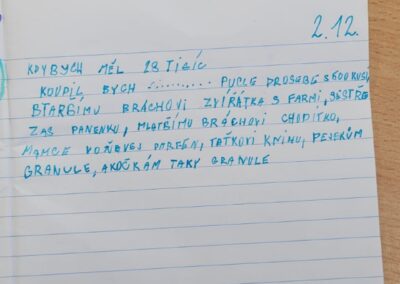 2.12.
KDYBYCH MĚL 28 TISÍC
KOUPIL BYCH :......,... PUCLE DROSEBE S 600 KUSŮ
STARŠÍMU BRÁCHOVI ZVÍŘÁTKA S FARMI, SESTŘE
ZAS PANENKU, MLATŠÍMU BRÁCHOVI CHODÍTKO,
MAMCE VOŇAVEJ PARFÉN, TAŤKOVI KNIHU, PEJSKŮM
GRANULE, A KOČKÁM TAKY GRANULE